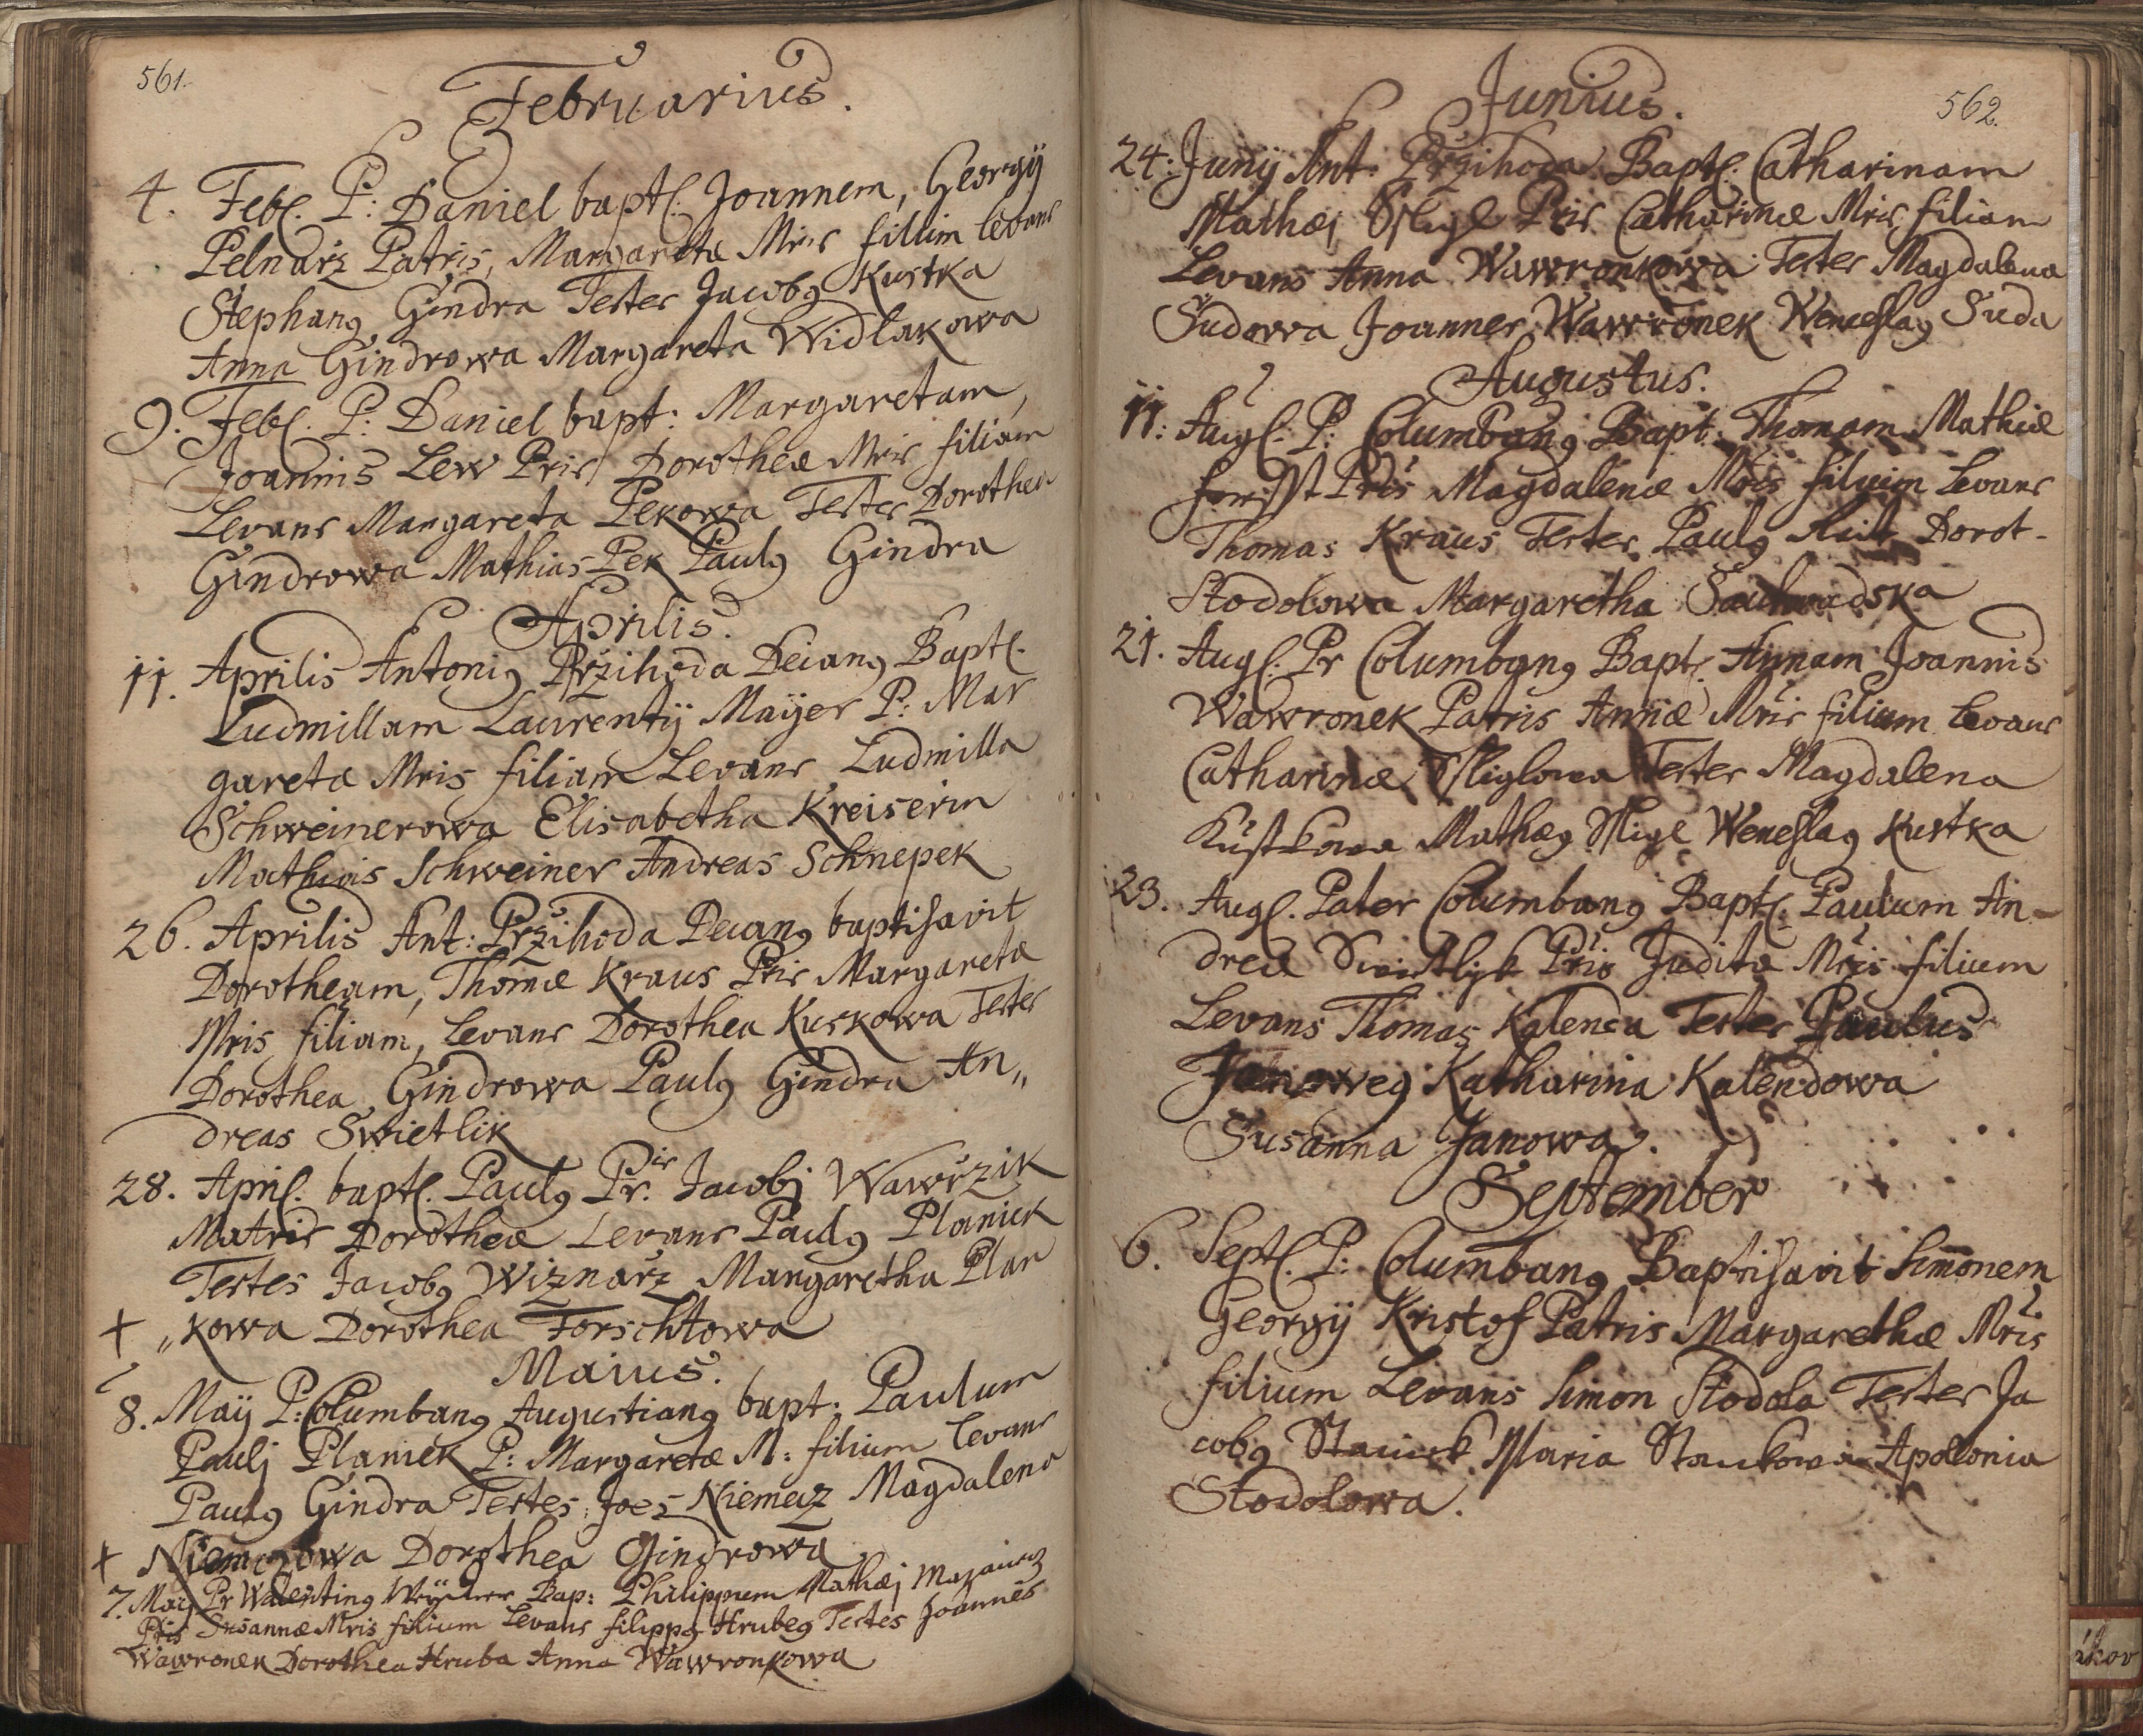 561.
Februarius.
4. Feb. P: Daniel bapt. Joannem, Georgÿ
Pelnarz Patris, Margareta Mris filium levans
Stephanꝰ Gindra Testes Jacobꝰ Kustka
Anna Gindrowa Margareta Widlakowa
9. Feb. P: Daniel bapt: Margaretam,
Joannis Lew Pris Dorotheæ Mris filiam
Levans Margareta Pekowa Testes Dorothea
Gindrowa Mathias Pek Paulꝰ Gindra
Aprilis.
11. Aprilis Antoniꝰ Przihoda Decanꝰ Bapt.
Ludmillam Laurentÿ Maÿer P: Mar
garetæ Mris filiam Levans Ludmilla
Schweinerowa Elisabetha Kreiserin
Mathias Schweiner Andreas Schnepek
26. Aprilis Ant: Przihoda Decanꝰ baptisavit
Dorotheam, Thomæ Kraus Pris Margareta
Mris filiam, Levans Dorothea Kuskowa Testes
Dorothea Gindrowa Paulꝰ Gindra An„
dreas Swietlik
28. April. bapt. Paulꝰ Pr. Jacobj Wawrzik
Matris Dorotheæ Levans Paulꝰ Planick
Testes Jacobꝰ Wiznarz Margaretha Plan
+ „kowa Dorothea Forschtowa
Maius.
8. Maÿ P: Columbanꝰ Augustianꝰ bapt: Paulum
Paulj Planiek P: Margaretæ M: filium levans
Paulꝰ Gindra Testes Joes Niemecz Magdalena
+ Niemczowa Dorothea Gindrowa
7. Maÿ Pr Walentinꝰ Bap: Philippum Mathæj
Pris Susannæ Mris filium Levans filippꝰ Hrubeꝰ Testes Joannes
Wawronek Dorothea Hruba Anna Wawronkowa
562.
Junius.
24: Junÿ Ant: Przihoda Bapt. Catharinam
Mathæj Sstigl Pris Catharinæ Mris filiam
Levans Anna Wawronkowa Testes Magdalena
Sudowa Joannes Wawronek Wenceslaꝰ Suda
Augustus.
11: Aug. P: Columbanꝰ Bapt. Thomam Mathiæ
Forsst Pris Magdalenæ Mris filium Levans
Thomas Kraus Testes Paulꝰ Dorot-
Stodolowa Margaretha
21. Aug. Pr Columbanꝰ Bapt. Annam Joannis
Wawronek Patris Annæ Mris filium Levans
Catharinæ Sstiglowa Testes Magdalena
Kustkowa Mathæꝰ Sstigl Wenceslaꝰ Kustka
23. Aug. Pater Columbanꝰ Bapt. Paulum An-
dreæ Swietlyk Pris Judita Mris filium
Levans Thomas Kalenda Testes Paulus
Janoweꝰ Katharina Kalendowa
Susanna Janowa.
September
6. Sept. P: Columbanꝰ Baptisavit Simonem
Georgÿ Kristof Patris Margarethæ Mris
filium Levans Simon Stodola Testes Ja
cobꝰ Staniek Maria Stankowa Apolonia
Stodolowa.